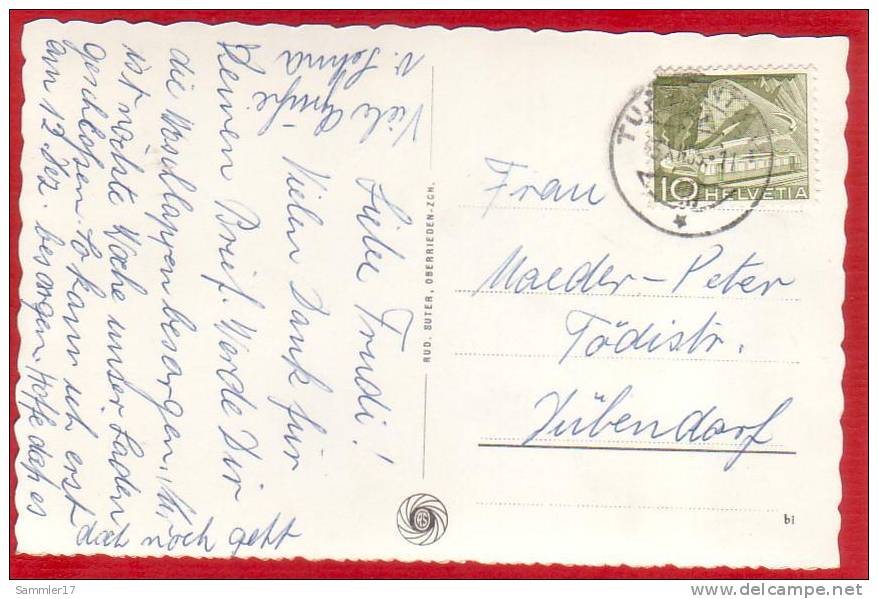 Liebe Trudi!
Vielen Dank für
Deinen Brief. Werde Dir
die Waschlappen besorgen. Nur
ist nächste Woche unser Laden
geschlossen. So kann ich erst
am 12. Dez. besorgen. Hoffe dass es
doch noch geht
Viele Grüsse
v.
RUD. SUTER, OBERRIEDEN-ZCH.
RS
10 HELVETIA
Frau
Maeder-Peter
Tödistr.
Dübendorf
bi
Sammler17
delcampe.net